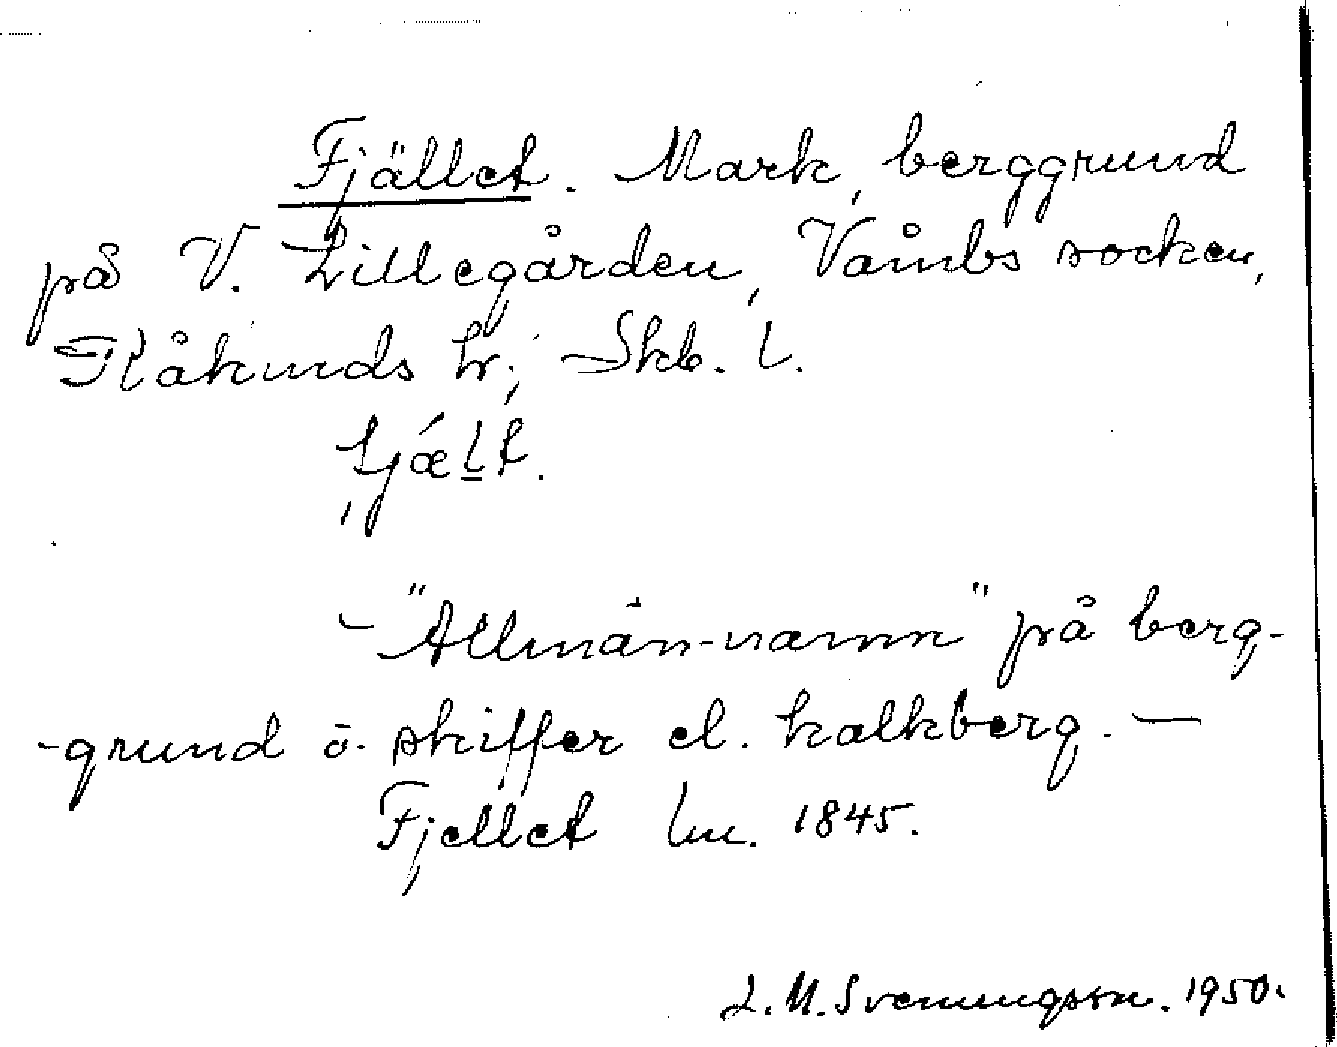 Fjället. Mark, berggrund
på V. Lillegården, Våmbs socken,
Kåkinds hr; Skb. l.
fjælt.
- "Allmän-namn" på berg-
-grund o. skiffer el. kalkberg. —
Fjellet lm. 1845.
L.M. Svenungsson. 1950.